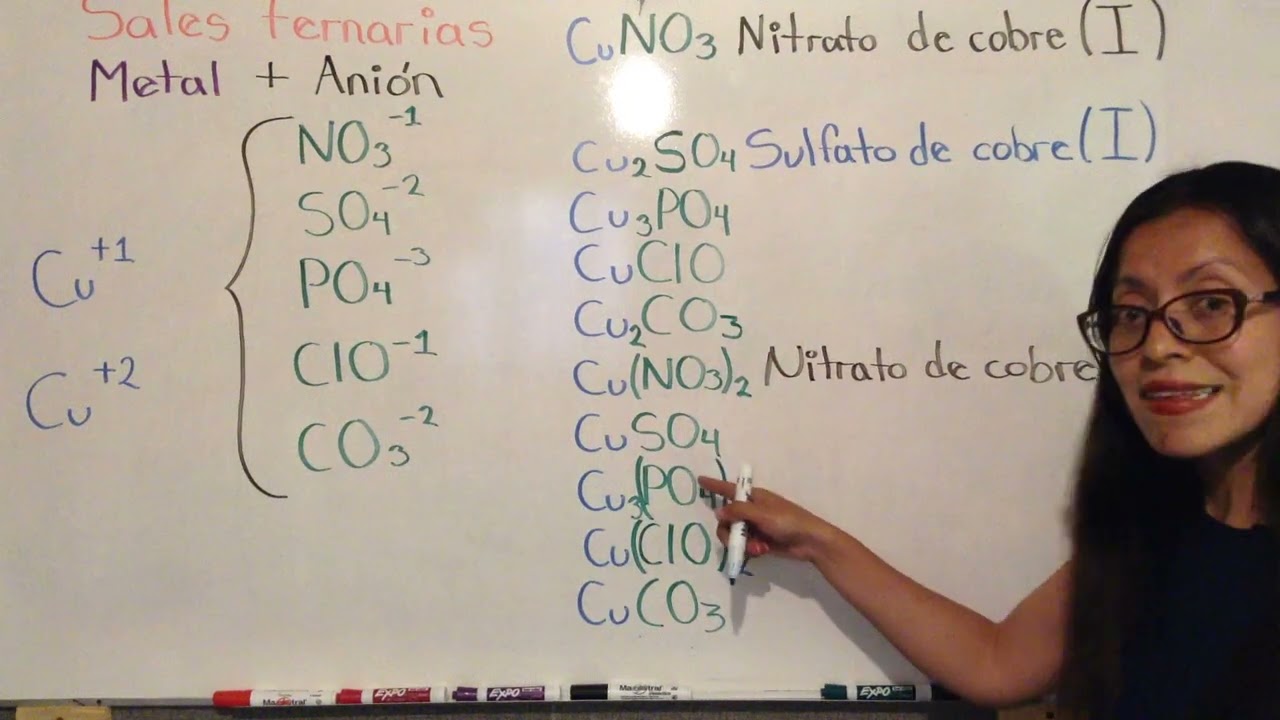 Sales ternarias
Metal + Anión
NO₃⁻¹
SO₄⁻²
PO₄⁻³
ClO⁻¹
CO₃⁻²
Cu⁺¹
Cu⁺²
CuNO₃ Nitrato de cobre (I)
Cu₂SO₄ Sulfato de cobre (I)
Cu₃PO₄
CuClO
Cu₂CO₃
Cu(NO₃)₂ Nitrato de cobre
CuSO₄
Cu₃(PO₄)
Cu(ClO)₂
CuCO₃
EXPO
EXPO
Magistral
EXPO